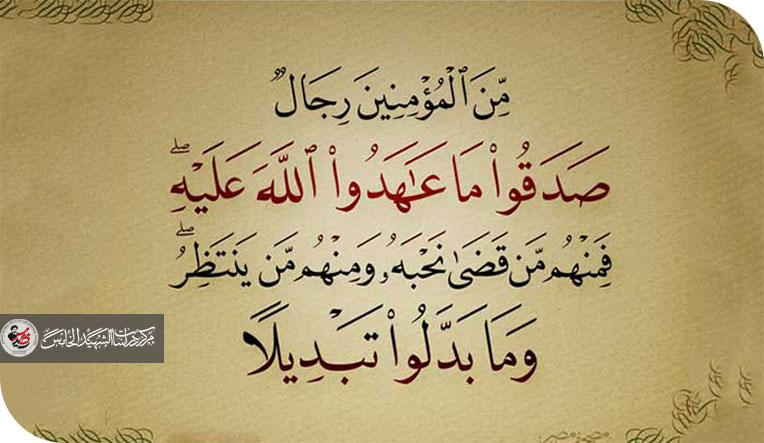 مِّنَ ٱلْمُؤْمِنِينَ رِجَالٌ
صَدَقُوا۟ مَا عَـٰهَدُوا۟ ٱللَّهَ عَلَيْهِ ۖ
فَمِنْهُم مَّن قَضَىٰ نَحْبَهُۥ وَمِنْهُم مَّن يَنتَظِرُ ۖ
وَمَا بَدَّلُوا۟ تَبْدِيلًا
مركز دراسات الشهيد الخامس